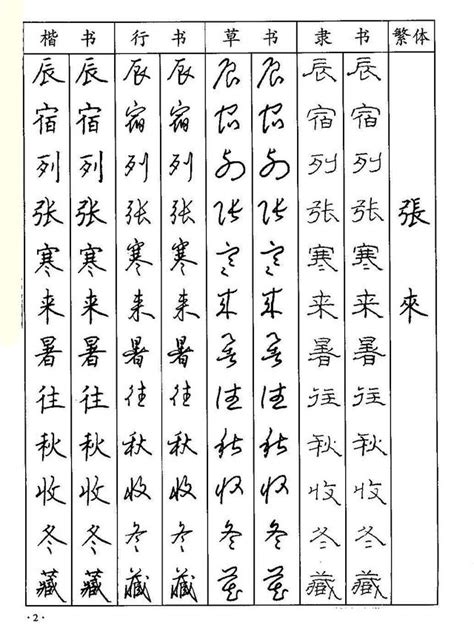 楷 书 行 书 草 书 隶 书 繁体
辰 辰 辰 辰 辰 辰 辰 辰
宿 宿 宿 宿 宿 宿 宿 宿
列 列 列 列 列 列 列 列
张 张 张 张 张 张 张 张 張
寒 寒 寒 寒 寒 寒 寒 寒
来 来 来 来 来 来 来 来 來
暑 暑 暑 暑 暑 暑 暑 暑
往 往 往 往 往 往 往 往
秋 秋 秋 秋 秋 秋 秋 秋
收 收 收 收 收 收 收 收
冬 冬 冬 冬 冬 冬 冬 冬
藏 藏 藏 藏 藏 藏 藏 藏
· 2 ·